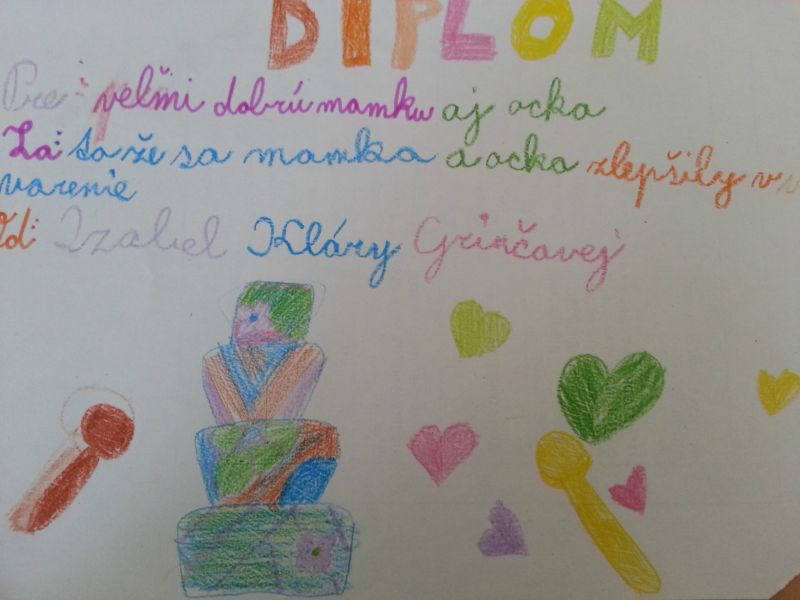 DIPLOM
Pre: veľmi dobrú mamku aj ocka
Za: to že sa mamka a ocko zlepšily v
varenie
Od: Izabel Kláry Grinčovej